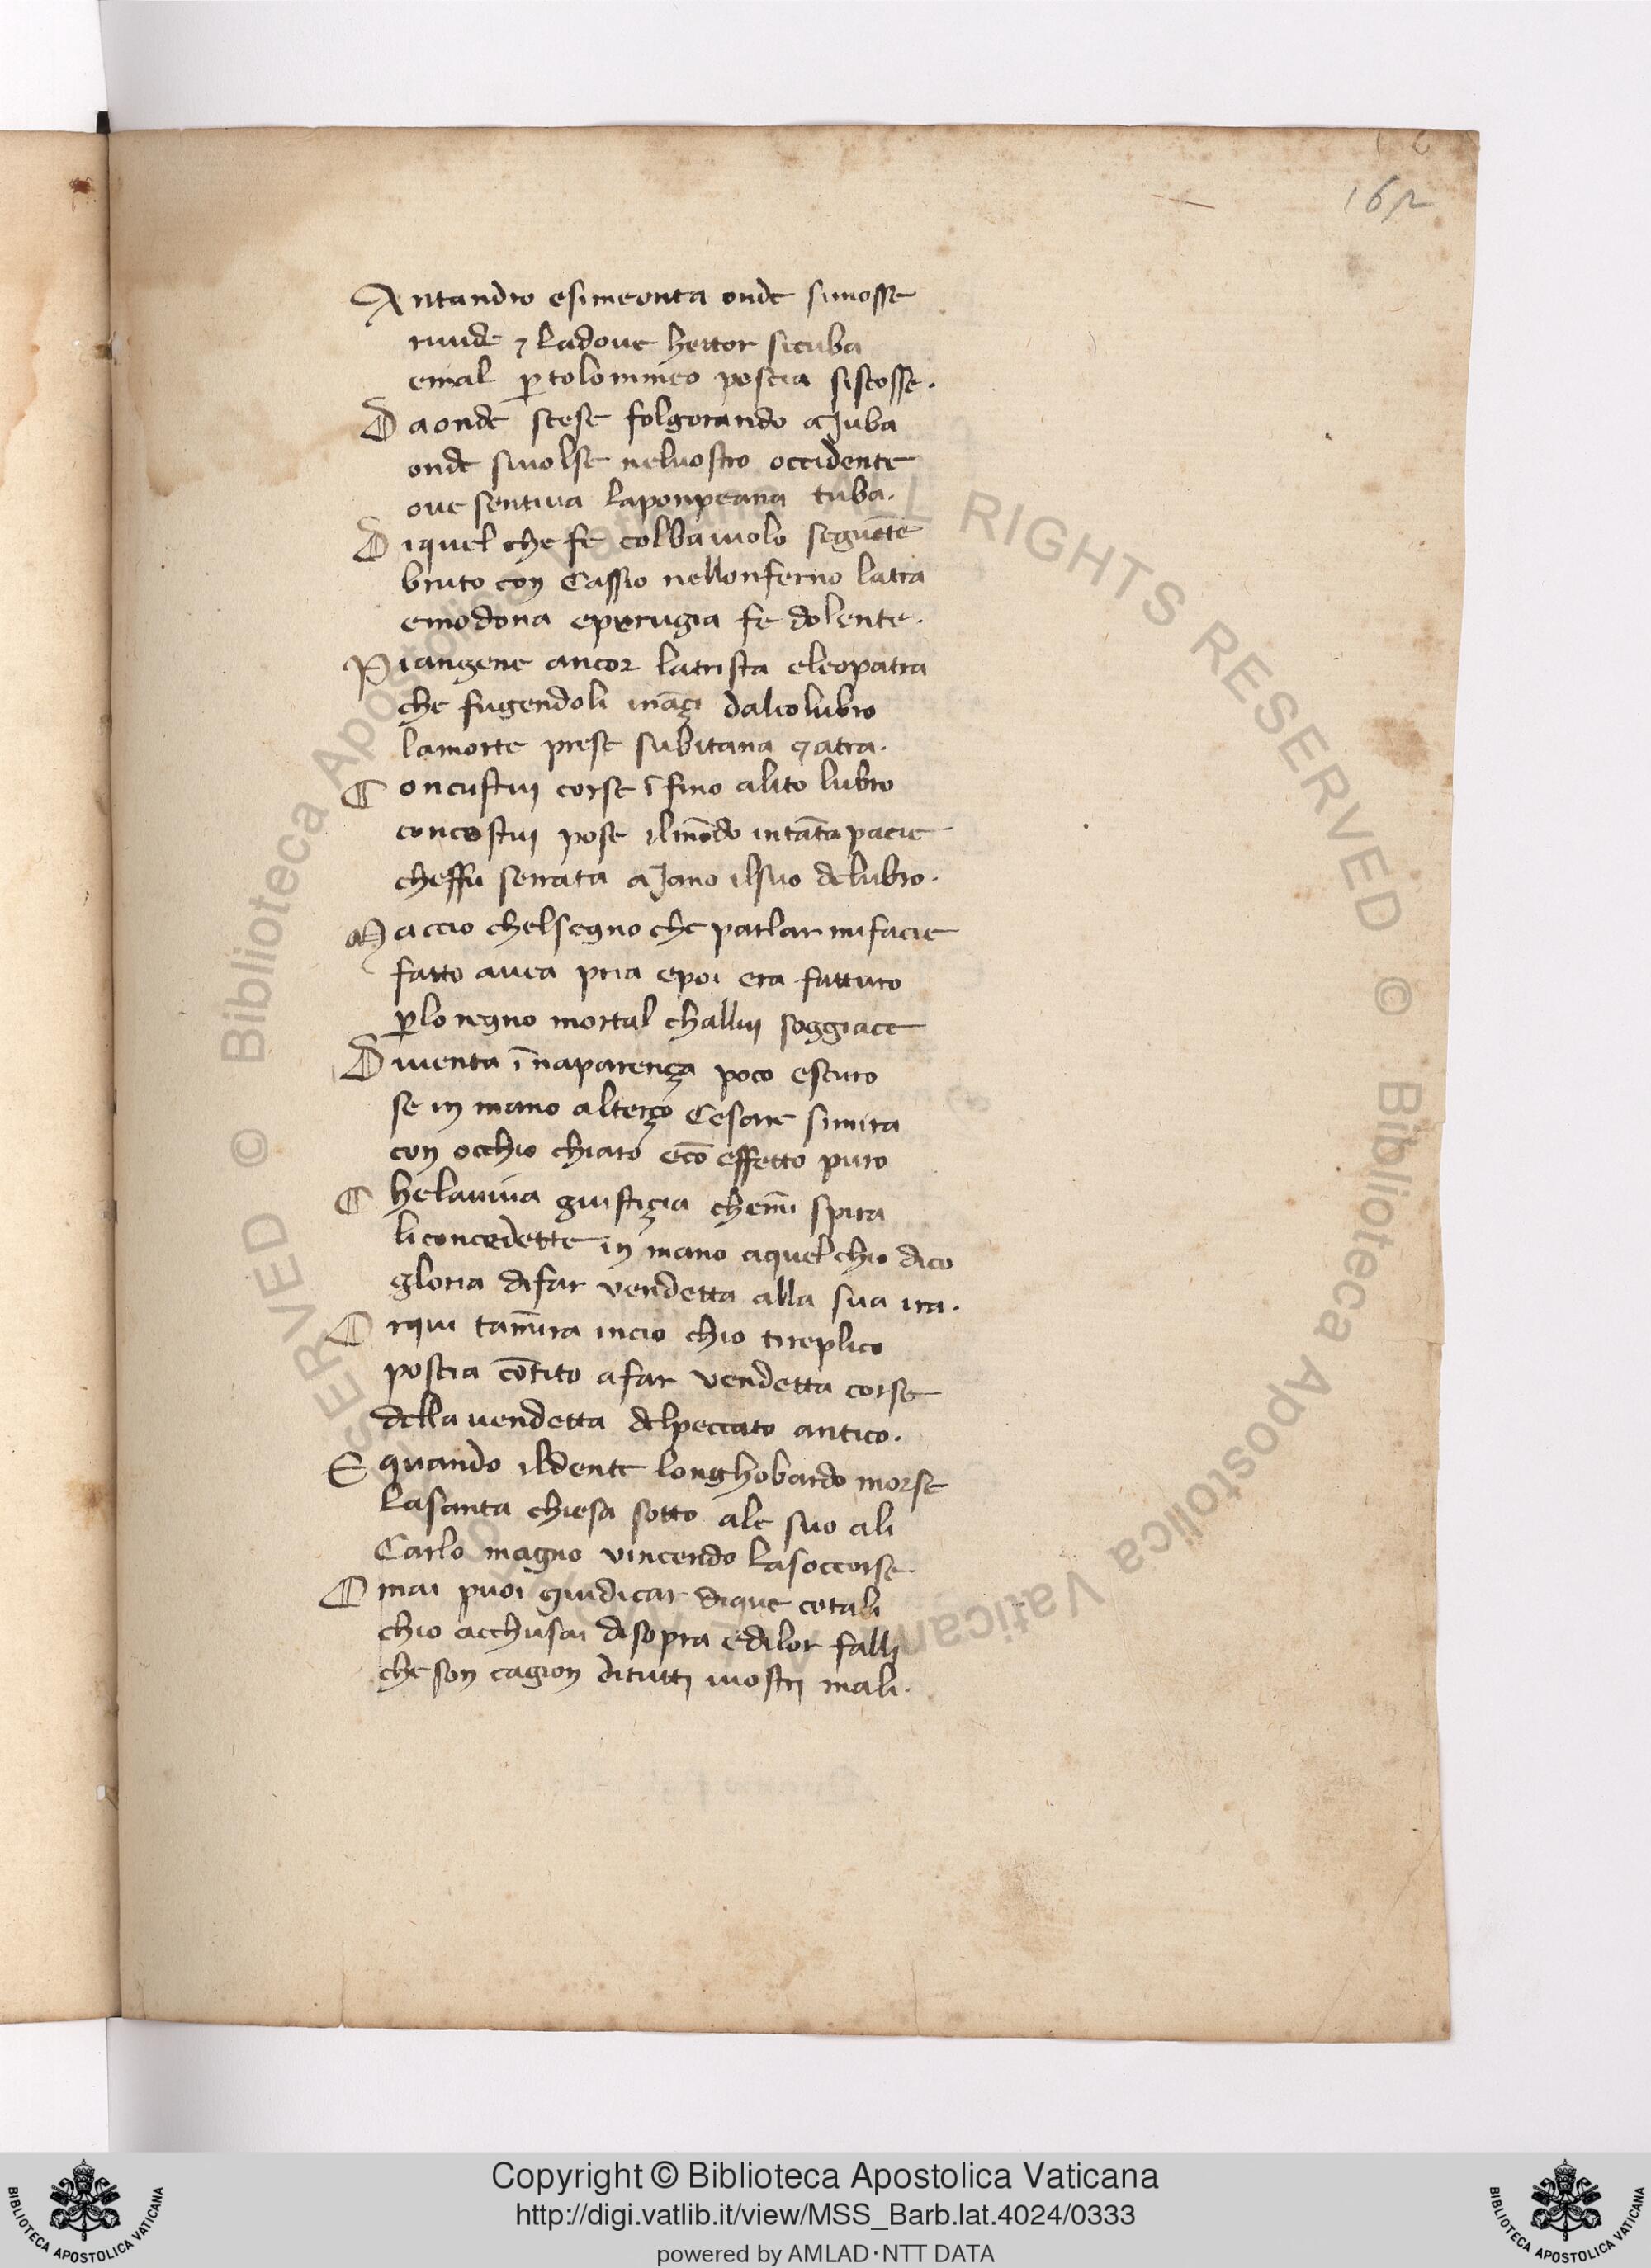 162
Antandro esimeonta onde simosse
riuide ⁊ ladoue hettor sicuba
emal p̱ tolommeo poscia siscosse.
Daonde scese folgorando aJuba
onde siuolse neluostro occidente
oue sentiua laponpeana tuba.
Diquel che fe colbaiuolo seguēte
bruto con Cassio nellonferno latra
emodona eperugia fe dolente.
Piangene ancor latrista cleopatra
che fugendoli ināçi dalcolubro
lamorte prese subitana ⁊ atra.
Concustui corse īfino alito lubro
concostui pose ilmōdo intāta pacie
cheffu serrata aJano ilsuo delubro.
Maccio chelsegno che parlar mifacie
fatto auea pria epoi era fatturo
p̱lo regno mortal challui soggiace
Diuenta īnaparença poco escuro
se in mano alterço Cesare simira
con occhio chiaro ecō effetto puro
Chelauiua giustiçia chem̄i spira
liconcedette in mano aquel chio dico
gloria difar vendetta alla sua ira.
Orqui tam̄ira incio chio tireplico
poscia cōtito afar vendetta corse
della uendetta delpeccato antico.
E quando ildente longhobardo morse
lasanta chiesa sotto ale suo ali
Carlo magno vincendo lasoccorse.
Omai puoi giudicar dique cotali
chio acchusai disopra edilor falli
che son cagion ditutti iuostri mali.
Biblioteca Apostolica Vaticana ALL RIGHTS RESERVED ©
Copyright © Biblioteca Apostolica Vaticana
http://digi.vatlib.it/view/MSS_Barb.lat.4024/0333
powered by AMLAD·NTT DATA
BIBLIOTECA APOSTOLICA VATICANA
BIBLIOTECA APOSTOLICA VATICANA